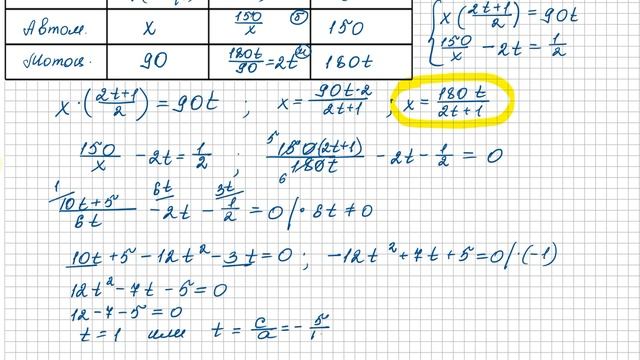 Автом. x 150/x (б) 150
Мотоц. 90 180t/90 = 2t 180t
{ x(2t+1/2) = 90t
150/x - 2t = 1/2
x · (2t+1/2) = 90t ; x = 90t·2/2t+1 ; x = 180t/2t+1
150/x - 2t = 1/2 , 5 150(2t+1)/6 180t - 2t - 1/2 = 0
1/ 10t+5/6t 6t/ - 2t 3t/ - 1/2 = 0 /· 6t ≠ 0
10t + 5 - 12t² - 3t = 0 ; -12t² + 7t + 5 = 0 /·(-1)
12t² - 7t - 5 = 0
12 - 7 - 5 = 0
t = 1 или t = c/a = - 5/1